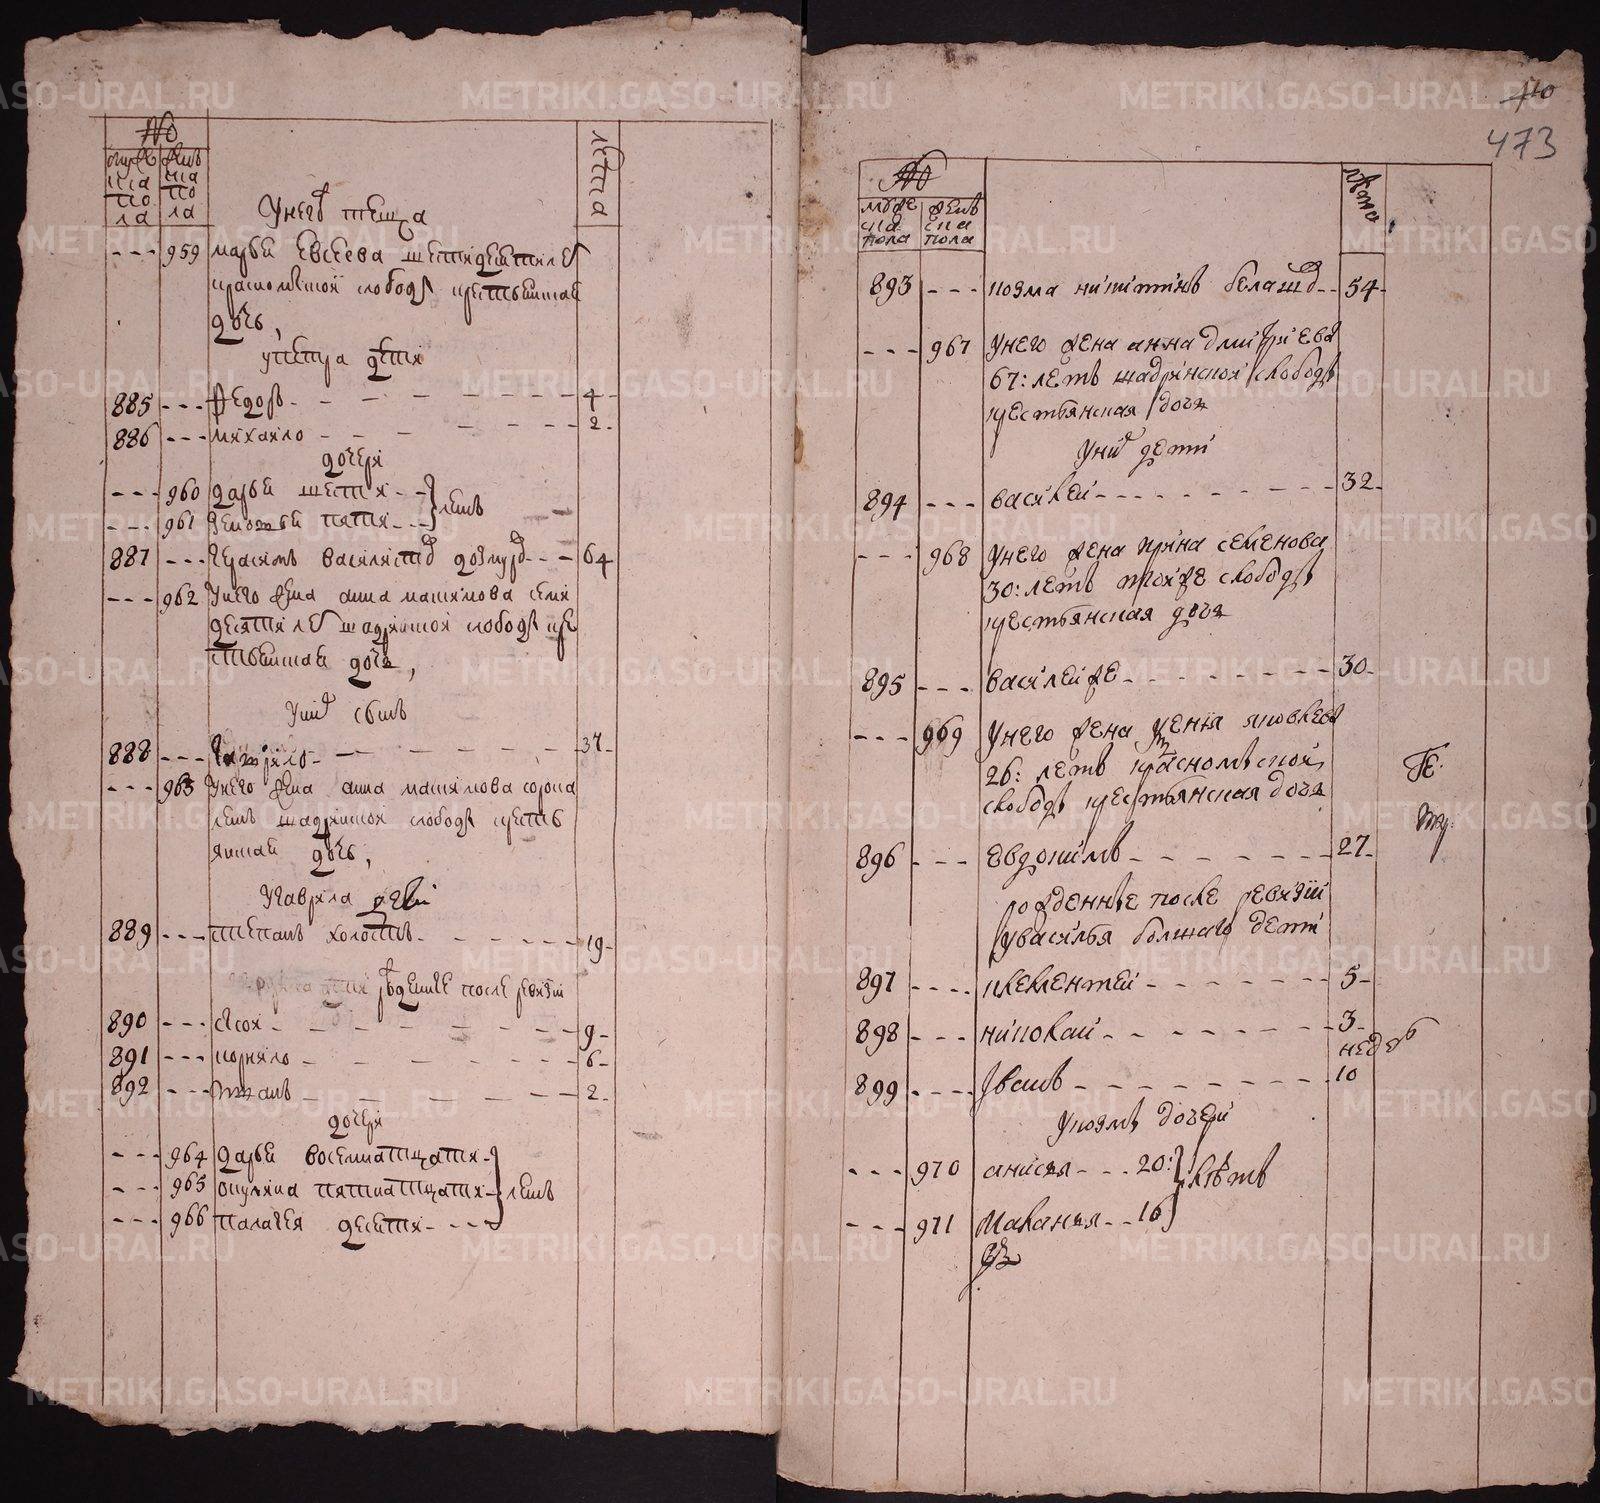 №
мужеска пола
женска пола
лета
У него теща
--- 959 марья Евсеева шестидесяти лет
красномыской слободы крестьянская
дочь,
у петра дети
885 --- Федоръ - - - 4
886 --- михаило - - - 2
дочери
--- 960 дарья шести - -
--- 961 пяти - - летъ
887 --- Герасимъ василисъ - - 64
--- 962 У него жена анна максимова семи
десяти лет шадринской слободы кре
стьянская дочь,
У них сынъ
888 --- Гаврило - - - 37
--- 963 У него жена анна максимова сорока
летъ шадринской слободы кресть
янская дочь,
У гаврила дети
889 --- степанъ холостъ - - - 19
рожденные после ревизии
890 --- - - - 9
891 --- корнило - - - 6
892 --- - - - 2
дочери
--- 964 дарья восемнатцати -
--- 965 окулина пятнатцати - летъ
--- 966 палагея десяти - - -
410
473
№
мужеска пола
женска пола
лѣта
893 --- козма никитинъ белаше - - 54
--- 967 У него жена анна дмитриева
67: летъ шадринской слободы
крестьянская дочь
У них дети
894 --- василей - - - 32
--- 968 У него жена ирина семенова
30: летъ той же слободы
крестьянская дочь
895 --- василей же - - - 30
--- 969 У него жена яковлева
26: летъ красномыской
слободы крестьянская дочь
896 --- евдокимъ - - - 27
рожденные после ревизии
у василья большаго дети
897 --- клементей - - - 5
898 --- николай - - - 3
недель
899 --- Иванъ - - - 10
У козмы дочери
--- 970 анисья - - - 20:
--- 971 маланья - - 16 лѣтъ